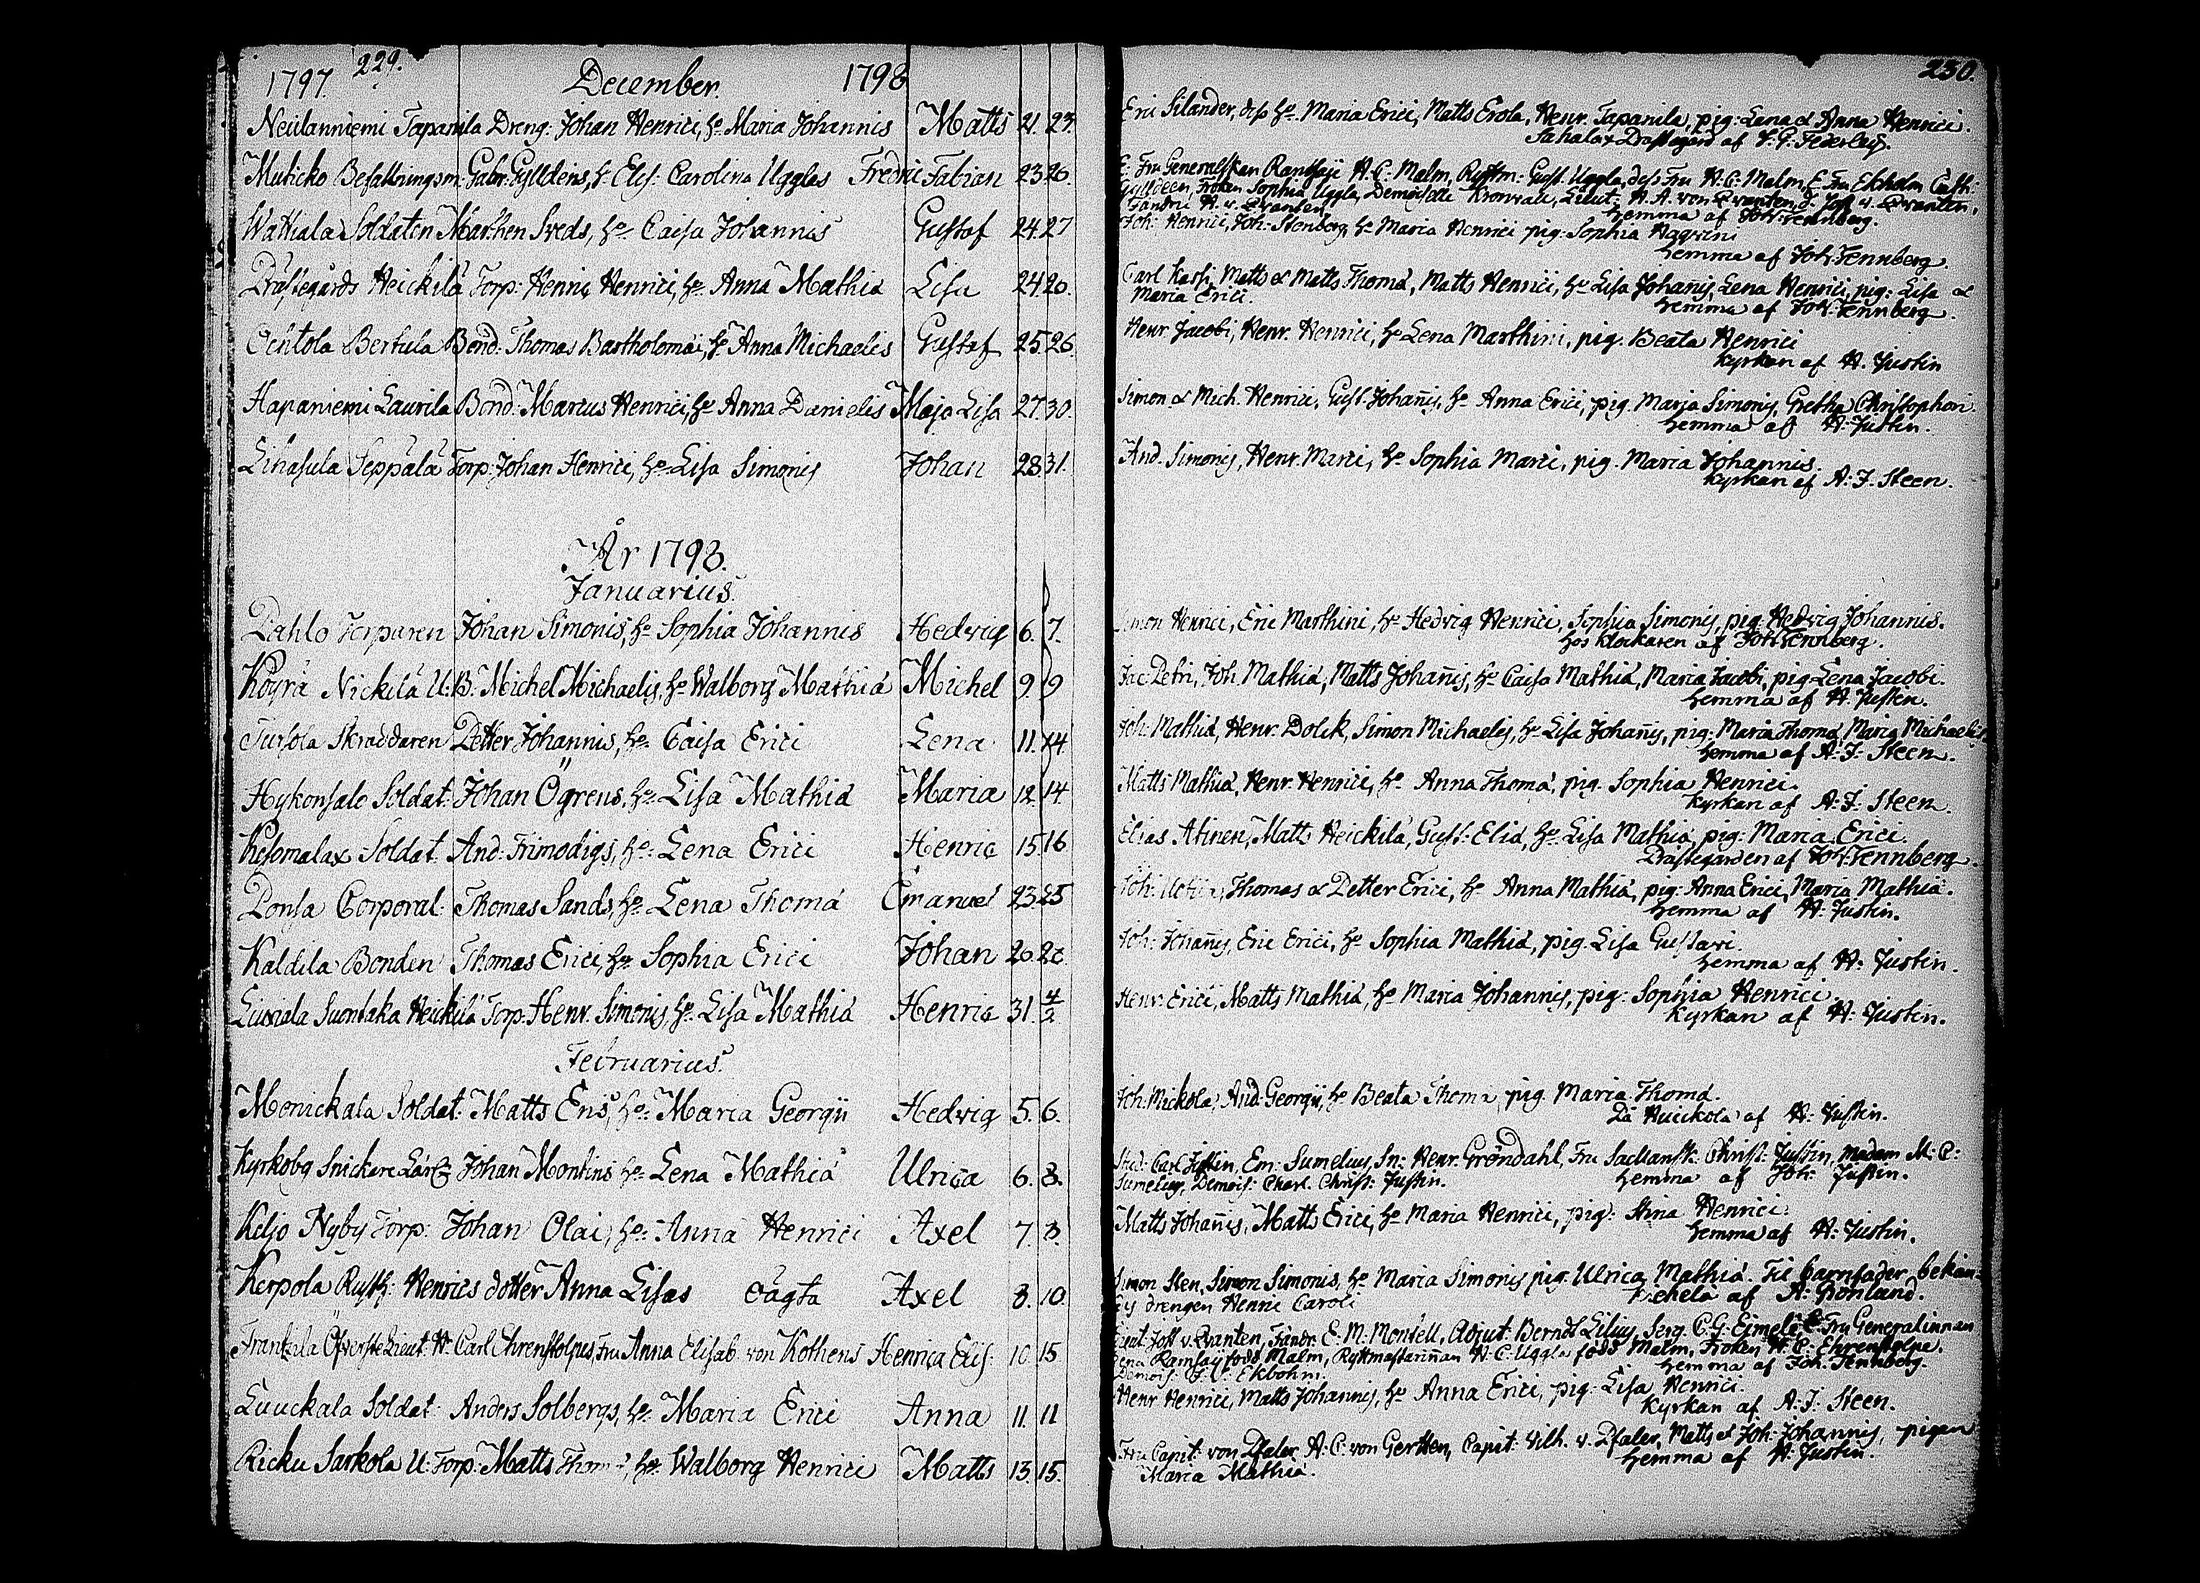 229.
1797. December. 1798
Neulanniemi Tapanila Dreng: Johan Henrici, h: Maria Johannis Matts 21. 23.
Muticko Befallningsm: Gabr: Gylldens, h: Elis: Carolina Ugglas Fredric Fabian 23 26.
Wattiala Soldaten Marthen Sveds, h: Caisa Johannis Gustaf 24 27
Prästegårds Heickilä Torp: Henric Henrici, h: Anna Mathiæ Lisa 24. 26.
Ochtola Bertula Bond: Thomas Bartholomæi, h: Anna Michaelis Gustaf 25. 26.
Hapaniemi Laurila Bond: Marcus Henrici, h: Anna Danielis Maja Lisa 27. 30.
Linasula Seppälä Torp: Johan Henrici, h: Lisa Simonis Johan 28. 31.
År 1798.
Januarius.
Pahlo Torparen Johan Simonis, h: Sophia Johannis Hedvig 6. 7.
Köyrä Nickilä U: B: Michel Michaelis, h: Walborg Mathiæ Michel 9. 9
Tursola Skräddaren Petter Johannis, h: Caisa Erici Lena 11. 14
Hykonsalo Soldat: Johan Ögrens, h: Lisa Mathiæ Maria 12. 14.
Kesomalax Soldat: And: Frimodigs, h: Lena Erici Henric 15. 16
Ponsa Corporal: Thomas Sands, h: Lena Thomæ Emanuel 23. 25
Kaldila Bonden Thomas Erici, h: Sophia Erici Johan 26. 28.
Liuxiala Suontaka Heickilä Torp: Henr. Simonis, h: Lisa Mathiæ Henric 31. 4/2
Februarius.
Monickala Soldat: Matts Ens, h: Maria Georgii Hedvig 5. 6.
Kyrkobg Snickare Lärl: Johan Montins h: Lena Mathiæ Ulrica 6. 8.
Keljo Nyby Torp: Johan Olai, h: Anna Henrici Axel 7. 8.
Kerpola Rytth: Henrics dotter Anna Lisas oägta Axel 8. 10.
Frankila Öfverste Lieut. H: Carl Ehrenstolpes, Fru Anna Elisab: von Kothens Henrica Elis: 10 15
Luuckala Soldat: Anders Solbergs, h: Maria Erici Anna 11. 11
Ricku Sarkola U: Torp: Matts Thomæ, h: Walborg Henrici Matts 13. 15.
230.
Eric Silander, dess h: Maria Erici, Matts Erola, Henr. Tapanila, pig: Lena & Anna Henrici.
Sahala Prästegård af Federley.
E: Fru Generalskan Ramsaij H: C: Malm, Ryttm: Gust: Uggla, dess Fru H: C: Malm, E: Fru Ekholm Cath:
Gylldeen, Fröken Sophia Uggla, Demoiselle Kronvall, Lieut: H. H. von Qvanten, d: Jos: v. Qvanten,
Fändric H. v. Qvanten. hemma af Joh: Tennberg.
Joh: Henrici, Joh: Stenberg, h: Maria Henrici pig: Sophia Hagrini
hemma af Joh: Tennberg.
Carl Kasp: Matts & Matts Thomæ, Matts Henrici, h: Lisa Johanis, Lena Henrici, pig: Lisa &
Maria Erici. hemma af Joh: Tennberg.
Henr. Jacobi, Henr. Henrici, h: Lena Marthini, pig: Beata Henrici
Kyrkan af H: Justin
Simon & Mich. Henrici, Gust. Johañis, h: Anna Erici, pig. Marja Simonis, Gretha Christophori.
hemma af H: Justin.
And. Simonis, Henr. Marci, h: Sophia Marci, pig. Maria Johannis.
Kyrkan af A: J: Steen.
Simon Henrici, Eric Marthini, h: Hedvig Henrici, Sophia Simonis, pig: Hedvig Johannis.
hos klockaren af Joh: Tennberg.
Jac: Petri, Joh. Mathiæ, Matts Johañis, h: Caisa Mathiæ, Maria Jacobi, pig: Lena Jacobi.
hemma af H: Justin.
Joh: Mathiæ, Henr. Dolck, Simon Michaelis, h: Lisa Johañis, pig: Maria Thomæ, Maria Michaelis.
hemma af A: J: Steen.
Matts Mathiæ, Henr. Henrici, h: Anna Thomæ, pig. Sophia Henrici.
Kyrkan af A: J: Steen.
Elias Atinen, Matts Heickilä, Gust: Eliæ, h: Lisa Mathiæ, pig: Maria Erici.
Prästegården af Joh: Tennberg.
Joh: Thomas & Petter Erici, h: Anna Mathiæ, pig: Anna Erici, Maria Mathiæ.
hemma af H: Justin.
Joh: Johañis, Eric Erici, h: Sophia Mathiæ, pig: Lisa Gustavi.
hemma af H: Justin.
Henr. Erici, Matts Mathiæ, h: Maria Johannis, pig: Sophia Henrici.
Kyrkan af H: Justin.
Joh: Mickola, And: Georgii, h: Beata Thomæ, pig. Maria Thomæ.
På Huickola af H: Justin.
Stud: Carl Justin, Em: Sumelius, Sn: Henr. Gröndahl, Fru Christ: Justin, Madam M: C:
Sumelius, Demois: Charl. Christ: Justin. hemma af Joh: Justin.
Matts Johañis, Matts Erici, h: Maria Henrici, pig: Stina Henrici.
hemma af H: Justin.
Simon Sten, Simon Simonis, h: Maria Simonis, pig: Ulrica Mathiæ. Til barnfader bekän-
es drengen Henric Caroli af H: Grönland.
Lieut: Jost v. Qvanten, Fändr. E: M: Montell, Adjut: Berndt Lilius, Serg. C: G: Ejmelé, E: Fru Generalinnan
Lena Ramsay född Malm, Ryttmästarinñan H: C: Uggla född Malm, Fröken H: C: Ehrenstolpe,
Demois: Ekbohm. hemma af Joh: Tennberg
Henr Henrici, Matts Johannis, h: Anna Erici, pig: Lisa Henrici.
Kyrkan af A: J: Steen.
Fru Capit: von Pfaler A: C: von Gertten, Capit: Vilh. v. Pfaler, Matts & Joh: Johannis, pigan
Maria Mathiæ. hemma af H: Justin.